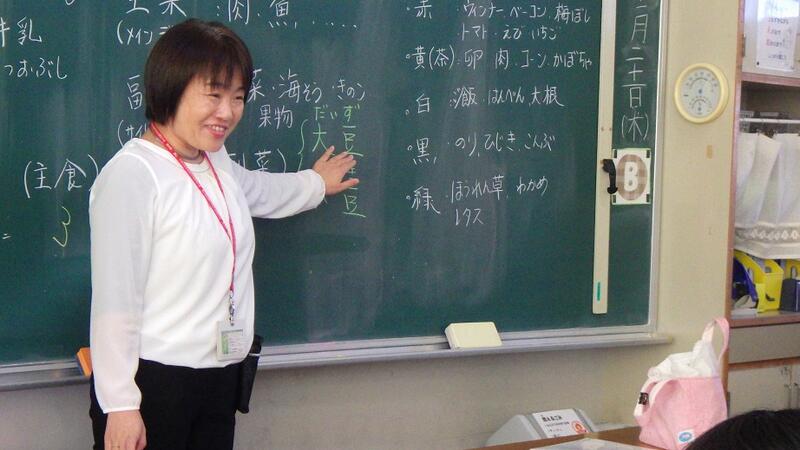 主菜 :肉.魚.
(メイン
牛乳
つおぶし
副 菜・海そう・きのこ
果物
だいず
大豆
(主食)
副菜)
=
3
豆
・赤 :ウィンナー、ベーコン、梅ぼし
トマト・えび・いちご
・黄(茶):卵 肉・コーン・かぼちゃ
・白 :ご飯、はんぺん、大根
・黒, :のり、ひじき、こんぶ
・緑 :ほうれん草、わかめ
レタス
月二十一日(木)
B